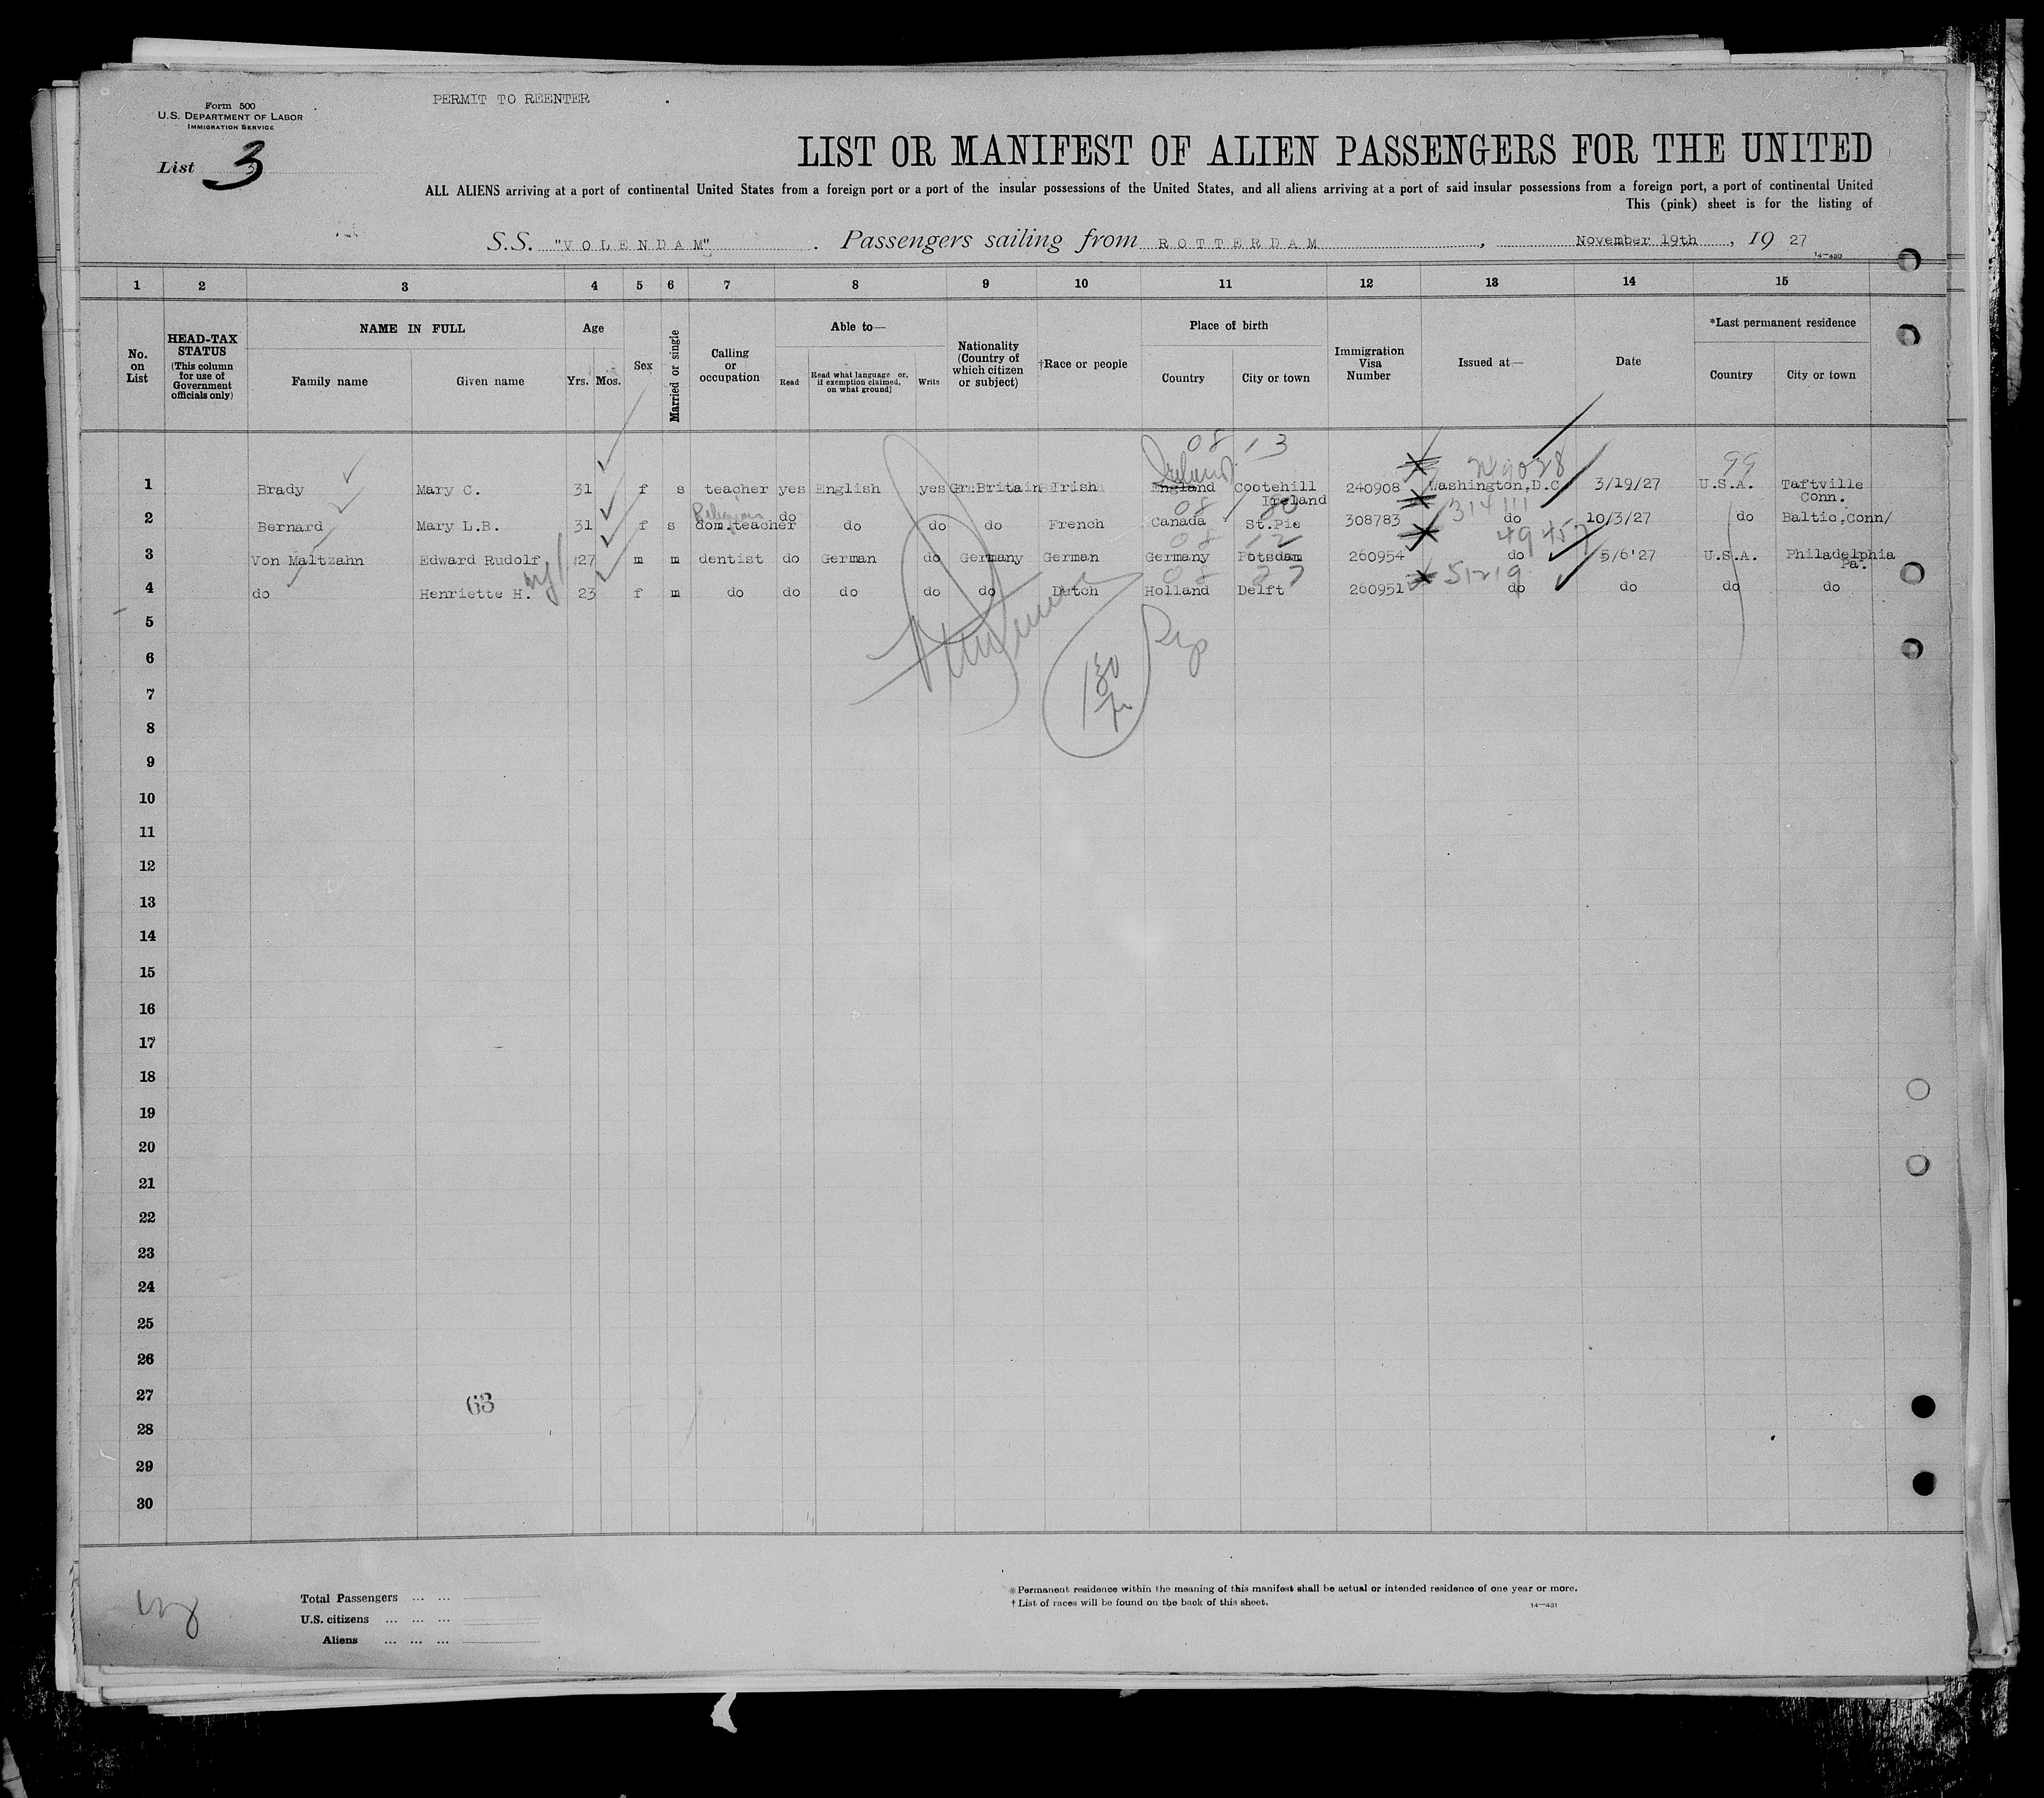 Form 500
U.S. DEPARTMENT OF LABOR
IMMIGRATION SERVICE
PERMIT TO REENTER
List 3
LIST OR MANIFEST OF ALIEN PASSENGERS FOR THE UNITED
ALL ALIENS arriving at a port of continental United States from a foreign port or a port of the insular possessions of the United States, and all aliens arriving at a port of said insular possessions from a foreign port, a port of continental United
This (pink) sheet is for the listing of
S.S. "VOLENDAM" . Passengers sailing from ROTTERDAM , November 19th , 19 27
14-430
1 2 3 4 5 6 7 8 9 10 11 12 13 14 15
No. on List
HEAD-TAX STATUS (This column for use of Government officials only)
NAME IN FULL
Family name Given name
Age
Yrs. Mos.
Sex
Married or single
Calling or occupation
Able to—
Read
Read what language or, if exemption claimed, on what ground]
Write
Nationality (Country of which citizen or subject)
†Race or people
Place of birth
Country City or town
Immigration Visa Number
Issued at—
Date
*Last permanent residence
Country City or town
08 13
Ireland 99
1 Brady Mary C. 31 f s teacher yes English yes Gr.Britain Irish England Cootehill Ireland 240908 Washington,D.C 3/19/27 U.S.A. Taftville Conn.
Religious 08 80 314111
2 Bernard Mary L.B. 31 f s dom.teacher do do do do French Canada St.Pie 308783 do 10/3/27 do Baltic,Conn/
08 12 49457
3 Von Maltzahn Edward Rudolf 27 m m dentist do German do Germany German Germany Potsdam 260954 do 5/6'27 U.S.A. Philadelphia Pa.
08 27 51219
4 do Henriette H. 23 f m do do do do do Dutch Holland Delft 260951 do do do do
5
6
7
8
9
10
11
12
13
14
15
16
17
18
19
20
21
22
23
24
25
26
27
63
28
29
30
Total Passengers ... ...
U.S. citizens ... ... ...
Aliens ... ... ...
*Permanent residence within the meaning of this manifest shall be actual or intended residence of one year or more.
†List of races will be found on the back of this sheet.
14-431